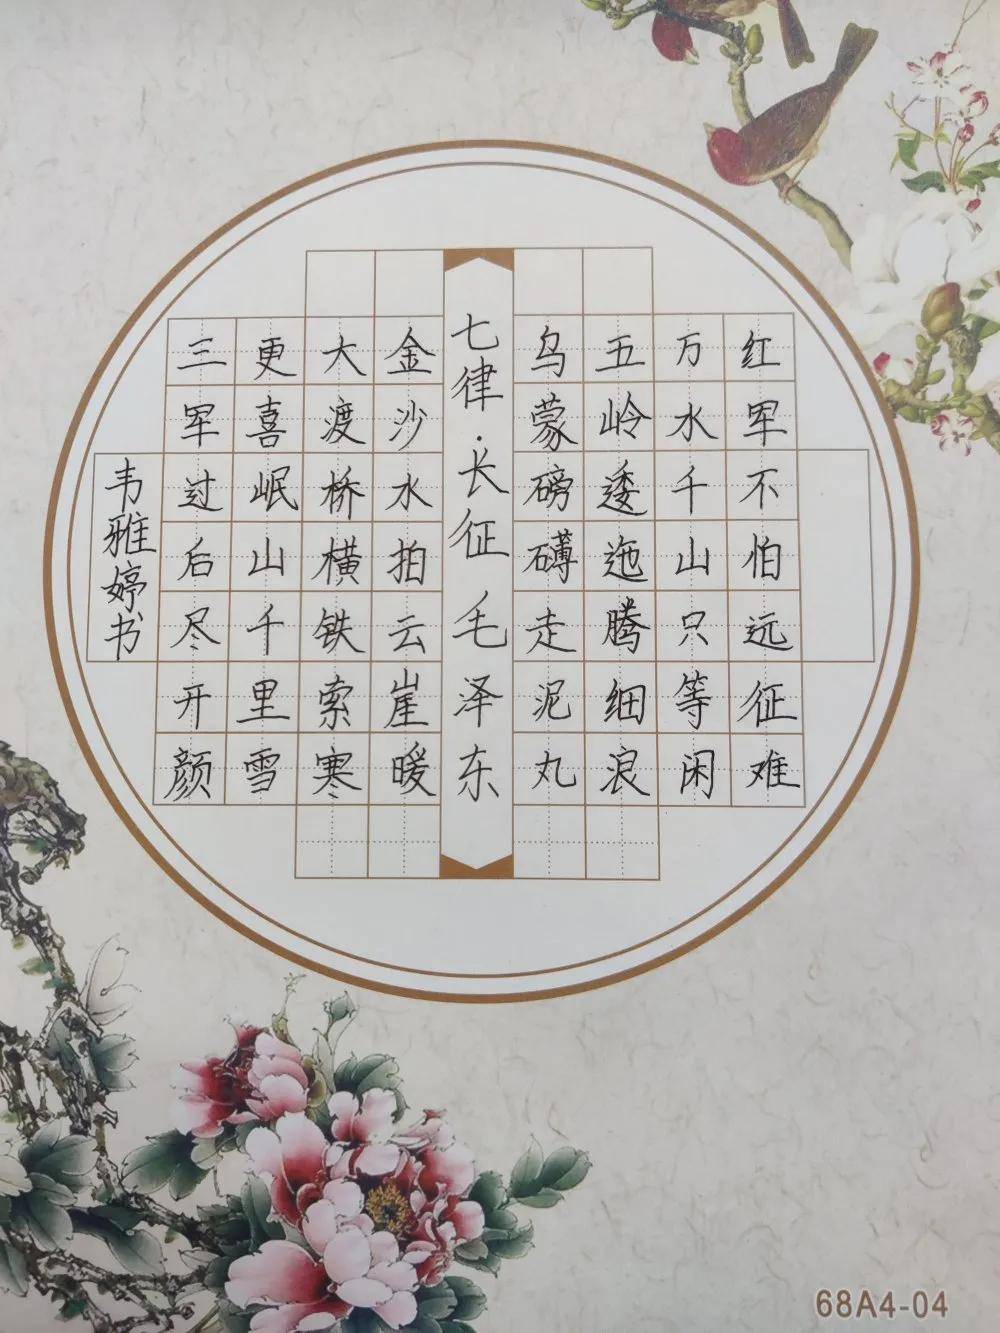 红军不怕远征难
万水千山只等闲
五岭逶迤腾细浪
乌蒙磅礴走泥丸
七律·长征 毛泽东
金沙水拍云崖暖
大渡桥横铁索寒
更喜岷山千里雪
三军过后尽开颜
韦雅婷书
68A4-04